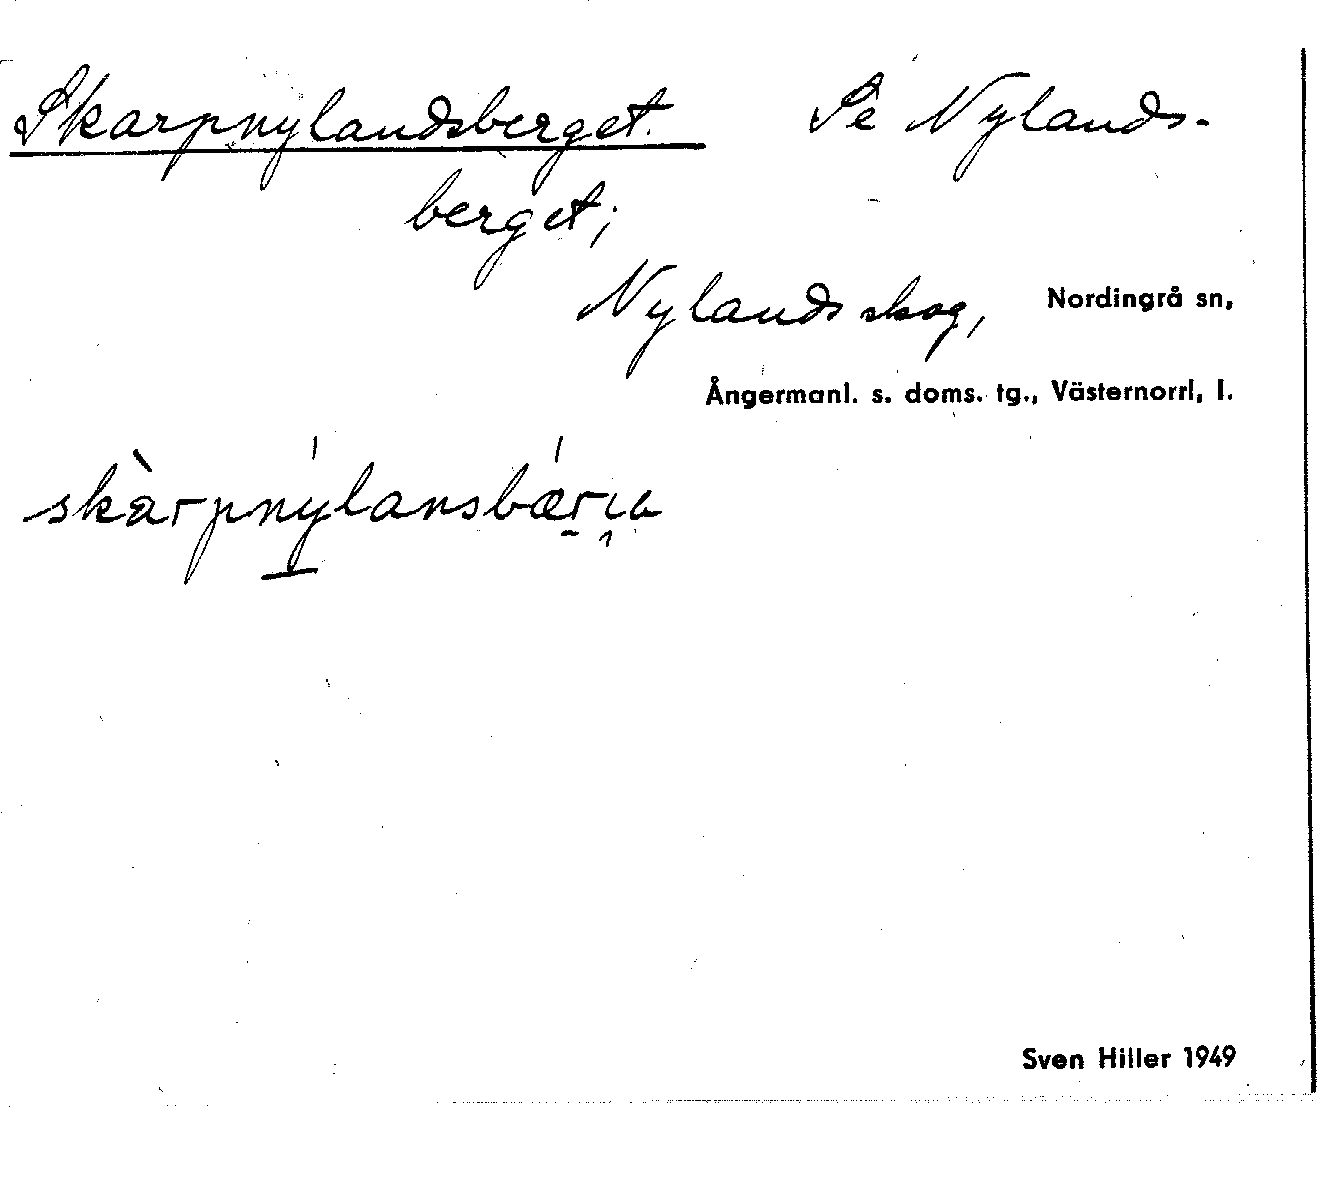 Skarpnylandsberget. Se Nylands-
berget;
Nylandsskog, Nordingrå sn,
Ångermanl. s. doms. tg., Västernorrl, l.
skàrpnýlansbæria
Sven Hiller 1949